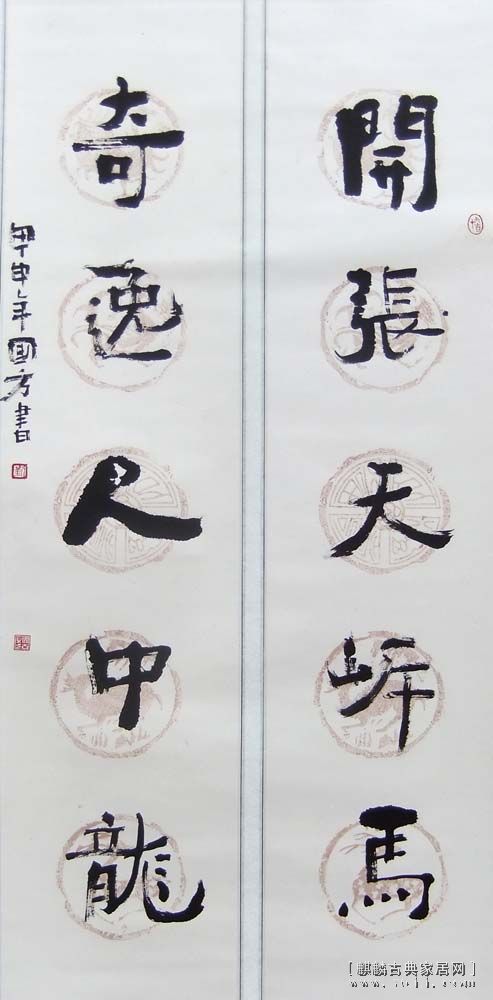 開張天岸馬
奇逸人中龍
甲申年國方書
[麒麟古典家居网]